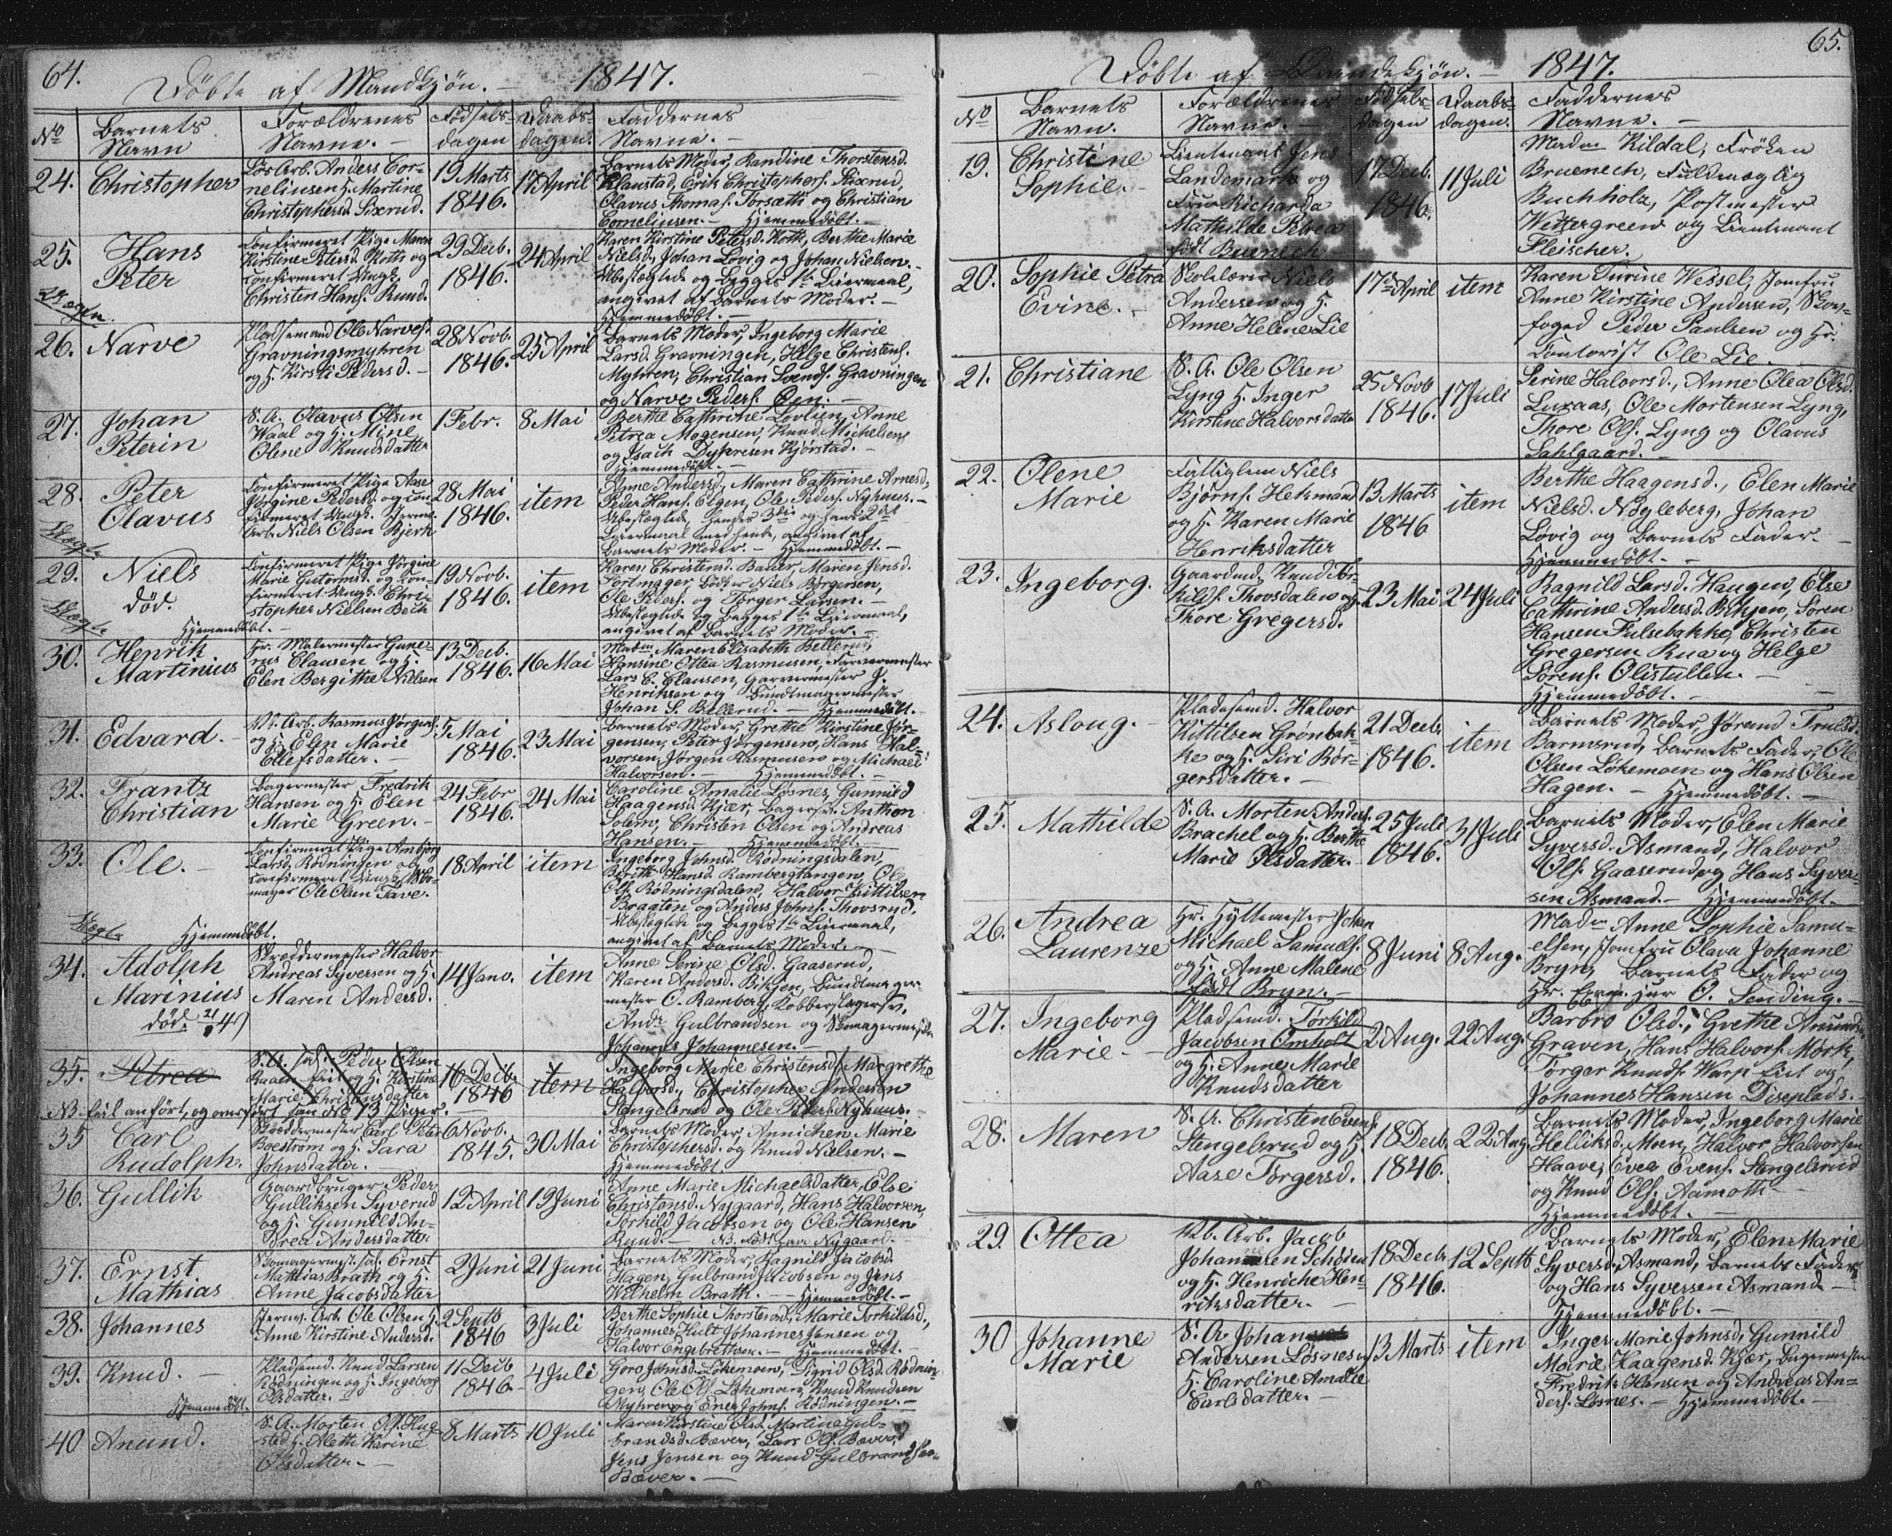 64.
Døbte af Mandkjøn. – 1847.
No
Barnets
Navn
Forældrenes
Navne. –
Fødsels-
dagen
Daabs-
dagen.
Faddernes
Navne. –
24.
Christopher
Anders Cor-
neliusen h. Martine
Christophersd. Sixerud.
19 Marts
1846.
17 April
Barnets Moder, Randine Thorstensd.
Klaustad, Erik Christophers. Sixerud,
Olavus Thomas. Torsæth og Christian
Corneliusen. – Hjemmedøbt. –
25.
Hans
Peter
Uægte.
Confirmeret Pige Maren
Kirstine Petersd. Koth og
Confirmeret Ungk.
Christen Hans. Rund.
29 Decb.
1846.
24 April
Karen Kirstine Petersd. Koth, Berthe Marie
Nielsd., Johan Løvig og Johan Nielsen. –
Ubeslægtede og Begges 1ste Leiermaal,
angivet af Barnets Moder. –
Hjemmedøbt. –
26.
Narve
Pladsemand Ole Narves.
Gravningsmyhren
og h. Kirsti Pedersd. –
28 Novb.
1846.
25 April
Barnets Moder, Ingeborg Marie
Larsd. Gravningen, Helge Christens.
Myhren, Christian Svends. Gravningen
og Narve Peders. Øen. –
27.
Johan
Peterin
S. A. Olavus Olsen
Waal og h. Mine
Olene Knudsdatter
1 Febr.
8 Mai
Berthe Cathriche Løvlien, Anne
Petrea Mogensen, Knud Michelsen,
og Isach Dypresen Hjørstad. –
Hjemmedøbt. –
28.
Peter
Olavus
Uægte
Confirmeret Pige Aase
Jørgine Peders. og con-
firmeret Ungk. Hjerms.
Arb. Niels Olsen Bjerk
28 Mai
1846.
item
Anne Anders., Maren Cathrine Arnesd.,
Peder Hans. Elgen, Ole Peders. Nyhuus. –
Ubeslægtede Hendes 3die og hans 2det
Leiermaal med hende, angivet af
Barnets Moder. – Hjemmedøbt. –
29.
Niels
død.
Uægte
Hjemmedøbt. –
Confirmeret Pige Jørgine
Marie Gutormsd. og Con-
firmeret Ungk. Chri-
stopher Nielsen Bech
19 Novb.
1846.
item
Karen Christensd. Bauer, Maren Jensd.
Niels Børgersen,
Ole Peders. og Tørger Larsen. –
Ubeslægtede og Begges 1ste Leiermaal,
angivet af Barnets Moder. –
30.
Henrik
Martinius
Hr. Malermester Gune-
rius Clausen og h.
Elen Bergithe Nielsen
13 Decb.
1846.
16 Mai
Madm. Maren Elisabeth Bellerud,
Hansine Ottea Rasmusen, Farvermester
Lars C. Clausen, Garvermester J.
Henriksen og Bundtmagermester
Johan S. Bellerud. – Hjemmedøbt. –
31.
Edvard. –
Arb. Rasmus Jørgens.
og h. Elen Marie
Ellefsdatter. –
5 Mai
1846.
23 Mai
Barnets Moder, Grethe Kirstine Jør-
gensen, Peter Jørgensen, Hans Hal-
vorsen, Jørgen Rasmusen og Michael
Halvorsen. – Hjemmedøbt. –
32.
Frantz
Christian
Bagermester Fredrik
Hansen og h. Elen
Marie Green. –
24 Febr
1846.
24 Mai
Caroline Amalie Løsnes, Gunnild
Haagensd. Kjær, Bagersv. Anthon
Solem, Christen Olsen og Andreas
Hansen. – Hjemmedøbt. –
33.
Ole. –
Uægte Hjemmedøbt.
Confirmeret Pige Anbjørg
Larsd. Rødningen og
Confirmeret Ungk. Sko-
mager Ole Olsen Fave.
18 April
item
Ingeborg Johnsd. Rødningsdalen,
Berith Hansd. Rambergtangen, Ole
Ols. Rødningsdalen, Halvor Kittilsen
Braaten og Anders Johns. Thovsrud.
Ubeslægtede og Begges 1ste Leiermaal,
angivet af Barnets Moder. –
34.
Adolph
Marinius
død
Skræddermester Halvor
Andreas Syversen og h.
Maren Andersd.
14 Janv.
item
Anne Serine Olsd. Gaaserud,
Karen Andersd. Bikjen, Bundtmager-
mester O. Ramberg, Kobberslagersv.
Andr. Gulbrandsen og Skomagermester
Johannes Johannesen. –
35.
Petrea
Peder Olsen
og h. Kirstine
Marie Christensdatter
16 Decb.
1846
item
Ingeborg Marie Christensd., Margrethe
Halvorsd., Christopher
Stengelsrud og Ole Peders. Nyhuus. –
NB feil anført, og overført som No 13 Piger. –
35
Carl
Rudolph.
Skræddermester Carl Peter
Boestrøm og h. Sara
Johnsdatter. –
6 Novb.
1845.
30 Mai
Barnets Moder, Annichen Marie
Christophersd. og Knud Nielsen. –
Hjemmedøbt. –
36.
Gullik
Gaardbruger Peder
Gulliksen Syverud
og h. Gunnild An-
drea Andersdatter
12 April
19 Juni
Anne Marie Michaelsdatter, Else
Christensd. Nygaard, Hans Halvorsen,
Torkild Jacobsen og Ole Hansen
Rund. – NB. født paa Nygaard. –
37.
Ernst
Mathias
Skomagermest. Ernst
Mathias Brath og h.
Anne Jacobsdatter
2 Juni
21 Juni
Barnets Moder, Ragnild Jacobsd.
Hagen, Gulbrand Jacobsen og Jens
Wilhelm Brath. – Hjemmedøbt. –
38.
Johannes
Jernv. Arb. Ole Olsen h.
Anne Kirstine Andersd.
2 Septb
1846
3 Juli
Berthe Sophie Thorstensd., Marie Torkildsd.,
Johannes Hult, Johannes Jensen og
Halvor Engebrethsen. – Hjemmedøbt. –
39.
Knud. –
Hjemmedøbt.
Pladsemd. Knud Larsen
Rødningen og h. Ingeborg
Olsdatter. –
11 Decb
1846. –
4 Juli
Goro Johnsd. Løkemoen, Sigrid Olsd. Rødnin-
gen, Ole Ols. Løkemoen, Knud Knudsen
Myhren og Ener Johns. Rødningen. –
40
Anund.
S. A. Morten Ols. Flug-
sted h. Aleth Karine
Olsdatter. –
8 Marts
10 Juli
Maren Kirstine Olsd., Martine Gul-
brandsd. Bæver, Lars Ols. Bæver,
Jens Jensen og Knud Gulbrandsen
Bæver. –
65.
Døbte af Qvindekjøn. – 1847.
No
Barnets
Navn.
Forældrenes
Navne. –
Fødsels-
dagen
Daabs-
dagen.
Faddernes
Navne. –
19.
Christine
Sophie. –
Lieutenant Jens
Landemark og
Frue Richarda
Mathilde Petrea
født Buenech
17 Decb.
1846.
11 Juli
Madm Kildal, Frøken
Bruenech, Fuldmægtig
Buchholz, Postmester
Wettergreen og Lieutenant
Fleischer.
20.
Sophie Petra
Evine. –
Skolelærer Niels
Andersen og h.
Anne Helene Lie
17de April
item
Karen Turine Wessel, Jomfru
Anne Kirstine Andersen, Skov-
foged Peder Paulsen og Hr.
Contorist Ole Lie. –
21.
Christiane
S. A. Ole Olsen
Lyng h. Inger
Kirstine Halvorsdatter
25 Novb
1846.
17 Juli
Serine Halvorsd., Anne Olea Olsd.
Luraas, Ole Mortensen Lyng,
Thore Ols. Lyng og Olavus
Sahlgaard. –
22.
Olene
Marie
Fattiglem Niels
Bjørns. Hekmand
og h. Karen Marie
Henriksdatter
13 Marts
1846
item
Berthe Haagensd., Elen Marie
Nielsd. Nøgleberg, Johan
Løvig og Barnets Fader. –
Hjemmedøbt. –
23.
Ingeborg.
Gaardmd. Knud Tor-
kilds. Thovsdalen og
Thore Gregersd.
23 Mai
24 Juli
Ragnild Larsd. Haugen, Else
Cathrine Andersd. Bikjen, Søren
Hansen Fulsebakke, Christen
Gregersen Rua og Helge
Sørens. Olistullen. –
Hjemmedøbt. –
24.
Asloug. –
Pladsemd. Halvor
Kittilsen Grønbak-
ke og h. Siri Bør-
gersdatter. –
21 Decb.
1846.
item
Barnets Moder, Jørand Trulsd.
Barmsrud, Barnets Fader, Ole
Olsen Løkemoen og Hans Olsen
Hagen. – Hjemmedøbt. –
25.
Mathilde
S. A. Morten Anders.
Brachel og h. Berthe
Marie Olsdatter. –
25 Juli
1846.
31 Juli
Barnets Moder, Elen Marie
Syversd. Asmand, Halvor
Ols. Gaaserud og Hans Syver-
sen Asmand. – Hjemmedøbt. –
26.
Andrea
Laurenze
Hr. Hyttemester Johan
Michael Samuels.
og h. Anne Malene
født Bryn. –
8 Juni
8 Aug.
Madm Anne Sophie Samu-
elsen, Jomfru Olava Johanne
Bryn, Barnets Fader og
Hr. Exam. jur O. Sending. –
27.
Ingeborg
Marie. –
Pladsemd. Torkild
Jacobsen Omholt
og h. Anne Marie
Knudsdatter
2 Aug.
22 Aug.
Barbro Olsd., Grethe Anundsd.
Graven, Hans Halvors. Mørk,
Tørger Knuds. Warp Eiet og
Johannes Hansen Diseplads. –
28.
Maren
S. A. Christen Evens.
Stengelsrud og h.
Aase Tørgersd.
18 Decb.
1846.
22 Aug
Barnets Moder, Ingeborg Marie
Helliksd. Moen, Halvor Halvorsen
Haave, Even Evens. Stengelsrud
og Knud Ols. Aamoth. –
Hjemmedøbt. –
29.
Ottea
Arb. Jacob
Johannesen Schøien
og h. Henriche Hen-
riksdatter. –
18 Decb.
1846.
12 Septb
Barnets Moder, Elen Marie
Syversd. Asmand, Barnets Fader
og Hans Syversen Asmand –
Hjemmedøbt. –
30
Johanne
Marie
S. A. Johan
Andersen Løsnes og
h. Caroline Amalie
Carlsdatter. –
13 Marts
item
Inger Marie Johnsd., Gunnild
Marie Haagensd. Kjær, Bagermester
Fredrik Hansen og Andreas An-
ders. Løsnes. – Hjemmedøbt. –